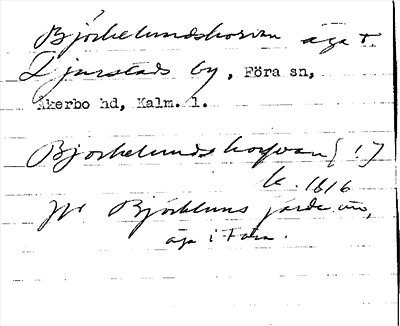 Björkelundshorvan äga t
Djurstads by, Föra sn,
Åkerbo hd, Kalm. l.
Björkelunds horfvan [!]
k. 1616
Jfr Björklunds
äga i Föra.